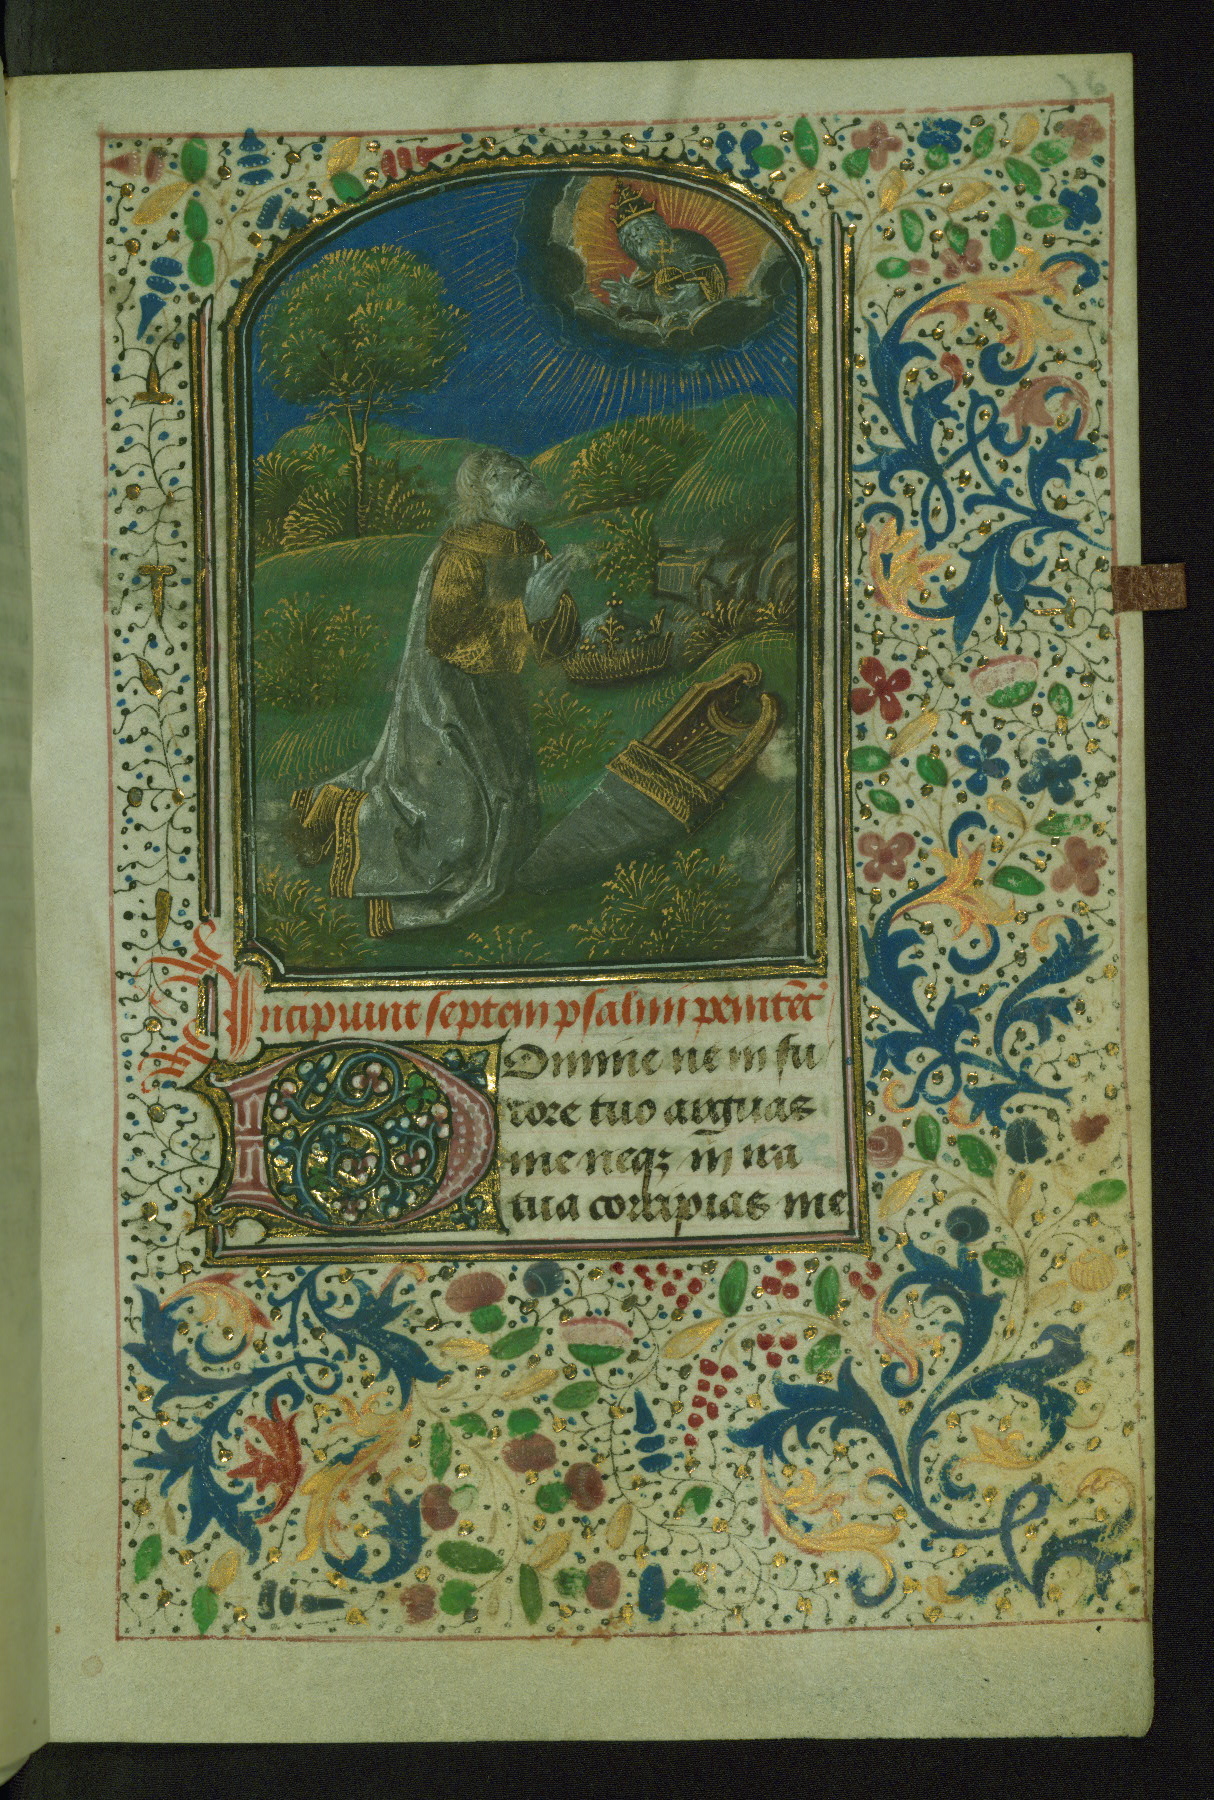 Incipiunt septem psalmi penitēt'
Domine ne in fu
rore tuo arguas
me neqꝫ in ira
tua corripias me